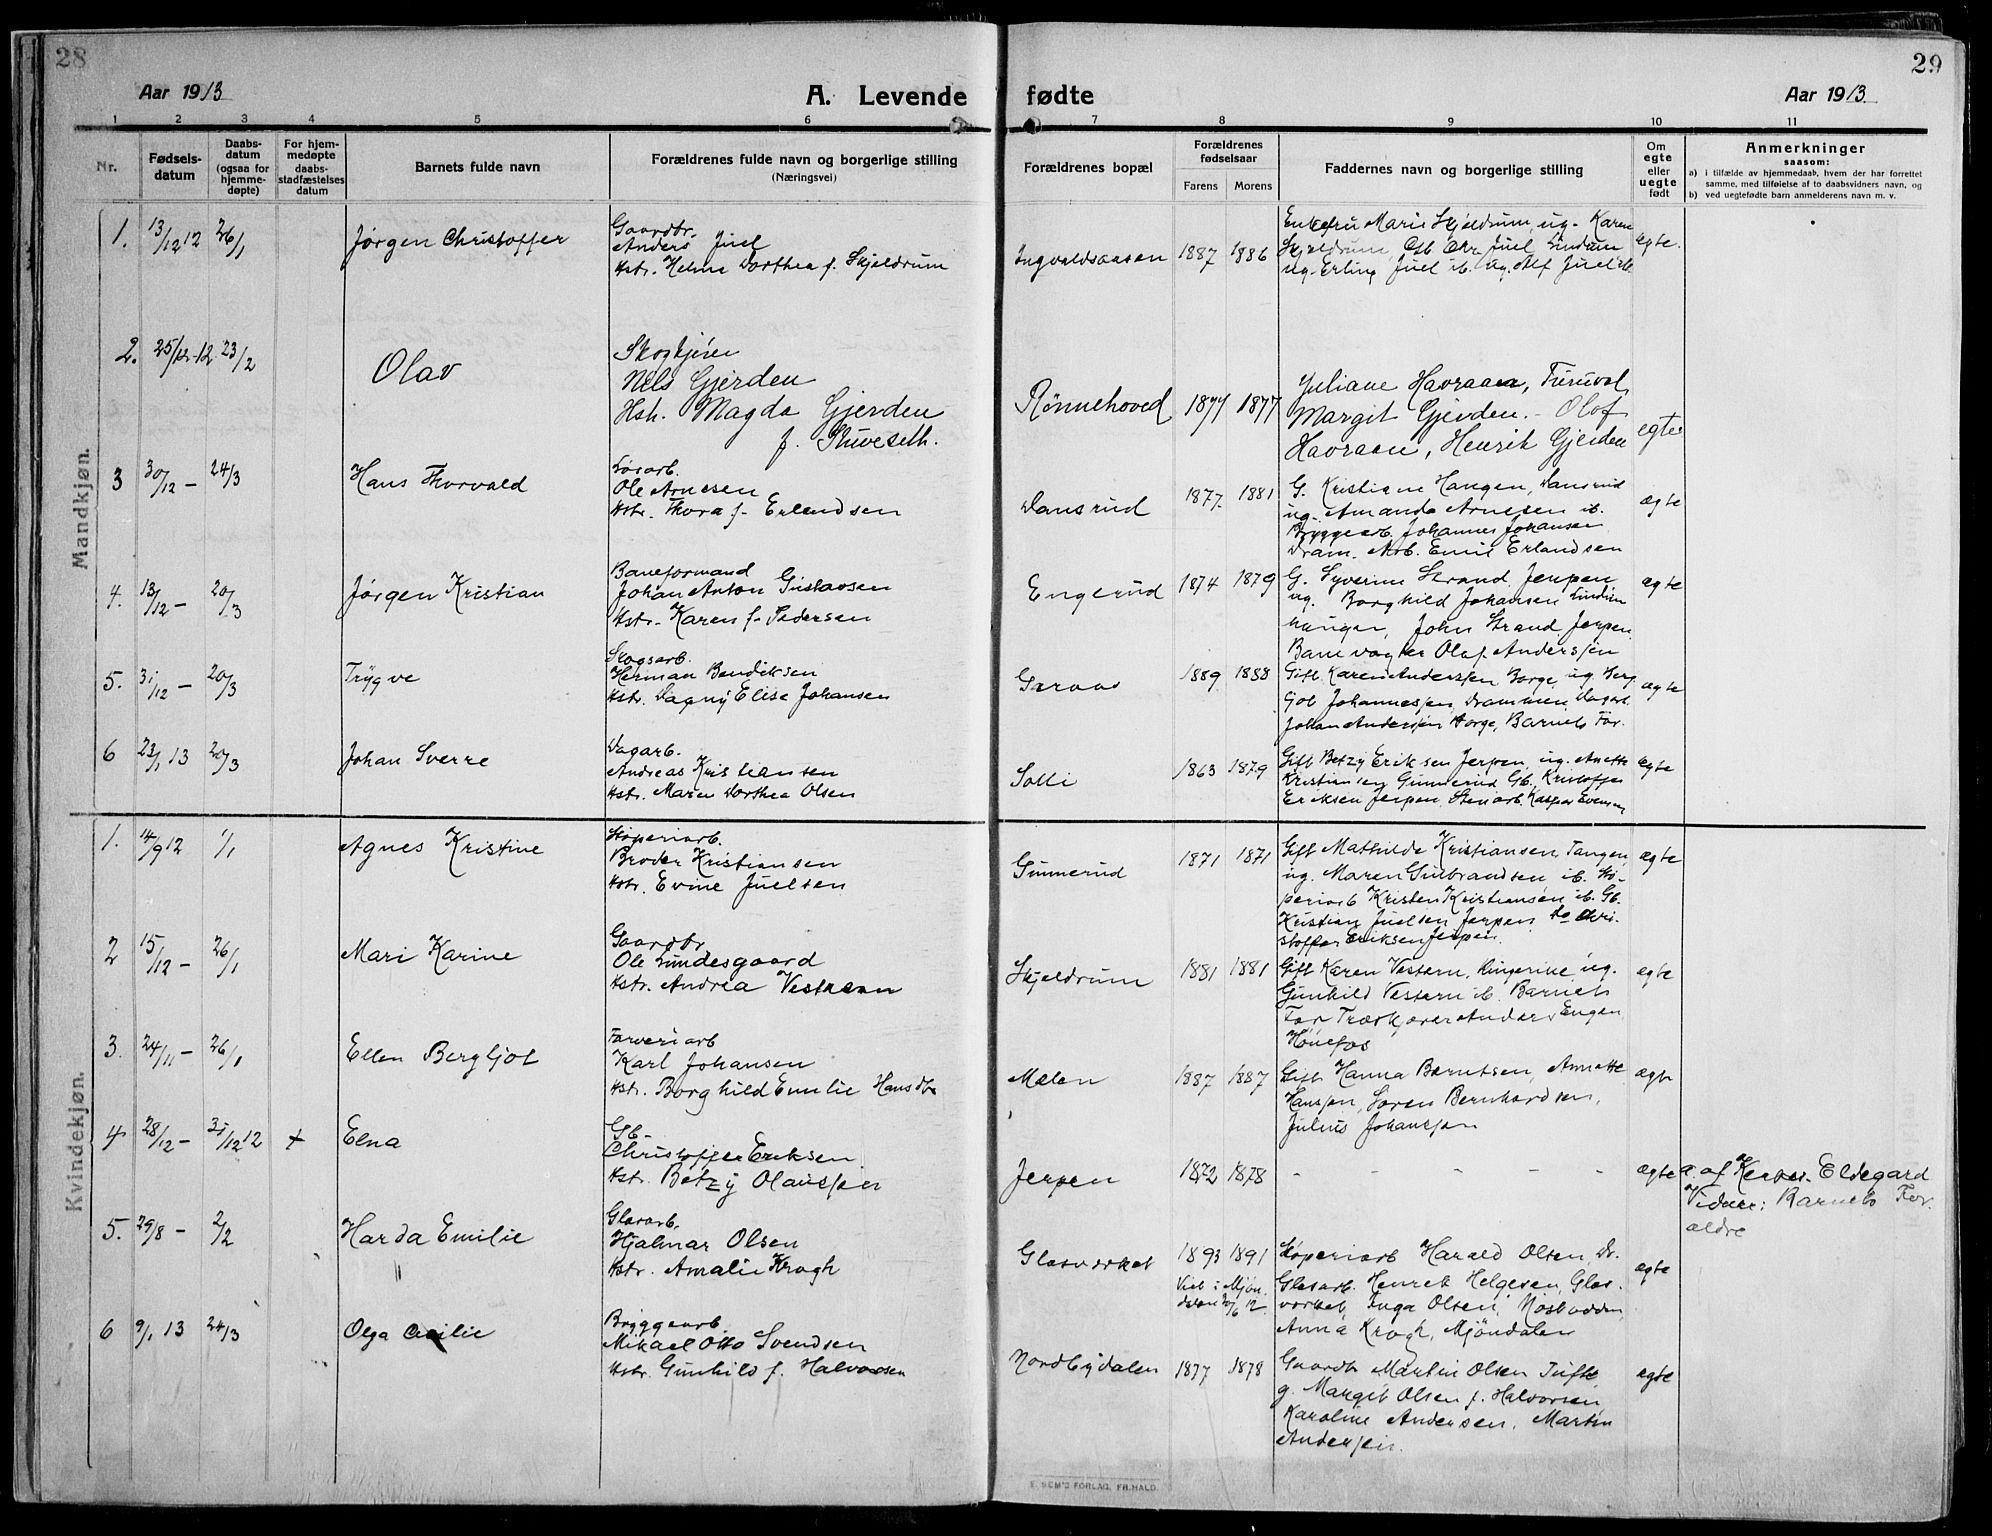 28
29
Aar 1913
A. Levende fødte
Aar 1913
1 2 3 4 5 6 7 8 9 10 11
Nr.
Fødsels-
datum
Daabs-
datum
(ogsaa for
hjemme-
døpte)
For hjem-
medøpte
daabs-
stadfæstelses
datum
Barnets fulde navn
Forældrenes fulde navn og borgerlige stilling
(Næringsvei)
Forældrenes bopæl
Forældrenes
fødselsaar
Farens Morens
Faddernes navn og borgerlige stilling
Om
egte
eller
uegte
født
Anmerkninger
saasom:
a) i tilfælde av hjemmedaab, hvem der har forrettet
samme, med tilføielse af to daabsvidners navn, og
b) ved uegtefødte barn anmelderens navn m. v.
Mandkjøn.
1. 13/12 12 26/1 Jørgen Christoffer
Gaardbr.
Anders Juel
Hstr. Helma Dorthea f. Skjeldrum
Ingvaldsaasen 1887 1886
Enkefru Marie Skjeldrum, ug. Karen
Skjeldrum, Gb. Chr. Juel Lindum
ug. Erling Juel ib. ug. Alf Juel ib.
egte.
2. 25/12-12 23/2 Olav
Skogkjører
Nils Gjerden
Hstr. Magda Gjerden
f. Stuveseth.
Rønnehoved 1877 1877
Juliane Havraan, Furuvol
Margit Gjerden. - Olof
Havraan, Henrik Gjerden
egte
3 30/12 - 24/3 Hans Thorvald
Løsarb.
Ole Arnesen
Hstr. Thora f. Erlandsen
Dansrud 1877. 1881
G. Kristiane Haugen, Dansrud
ug. Amanda Arnesen ib.
Bryggearb. Johannes Johansen
Dram. Arb. Emil Erlandsen
ægte
4. 13/12 - 20/3 Jørgen Kristian
Baneformand
Johan Anton Gustavsen
Hstr. Karen f. Pedersen
Engerud 1874 1879
G. Syverine Strand, Jerpen
ug. Borghild Johansen
John Strand Jerpen
Banevogter Olaf Andersen
ægte
5. 31/12 - 20/3 Trygve
Skogsarb.
Herman Bendiksen
Hstr. Dagny Elise Johansen
Garaas 1889 1888
Gift Karen Andersen, Borge, ug. Berg
ljot Johannessen, Drammen, Dagarb.
Johan Andersen Horge, Barnets Far.
ægte
6 23/1 13 20/3 Johan Sverre
Dagarb.
Andreas Kristiansen
Hstr. Maren Dorthea Olsen
Solli 1863 1879
Gift Betzy Eriksen Jerpen, ug. Anette
Kristiansen Gunnerud Gb. Kristoffer
Eriksen Jerpen, Stenarb. Kasper Evensen
egte
Kvindekjøn.
1. 14/9 12 1/1 Agnes Kristine
Støperiarb.
Broder Kristiansen
Hstr. Evine Juelsen
Gunnerud 1871 1871
Gift Mathilde Kristiansen Tangen,
ug. Maren Gulbrandsen ib. Stø-
periarb Kristen Kristiansen ib. Gb.
Kristian Juelsen Jerpen, Do Chri-
stoffer Eriksen Jerpen.
ægte
2 15/12 - 26/1 Mari Karine
Gaardbr
Ole Lundesgaard
Hstr. Andrea Vestern
Skjeldrum 1881 1881
Gift Karen Vestern, Ringerike ug.
Gunhild Vestern ib. Barnets
Far Træskjærer Anders Engen
Hønefos
egte
3. 24/11 - 26/1 Ellen Bergljot
Farveriarb
Karl Johansen
Hstr. Borghild Emilie Hansdtr
Melen 1887 1887
Gift Hanna Berntsen, Annette
Hansen, Søren Bernhardsen,
Julius Johansen
ægte
4 28/12 - 31/12 12 + Elna
Gb.
Christoffer Eriksen
Hstr. Betzy Olaussen
Jerpen 1872 1878
- - - - -
egte
a. af Kirkes. Eldegard
Vidner: Barnets For-
ældre
5. 29/8 - 2/2 Harda Emilie
Glasarb.
Hjalmar Olsen
Hstr. Amalie Krogh
Glasverket 1893 1891
Viet i Mjøn-
dalen 30/6 12.
Støperiarb Harald Olsen, Dr.
Glasarb. Henrik Helgesen, Glas-
verket, Inga Olsen, Næsodden,
Anna Krogh, Mjøndalen
egte
6 9/1 13 24/3 Olga Cecilie
Bryggearb.
Mikael Otto Svendsen
Hstr. Gunhild f. Halvorsen
Nordbydalen 1877 1878
Gaardb. Martin Olsen Tufte,
g. Margit Olsen f. Halvorsen,
Karoline Andersen, Martin
Andersen.
egte
E. SEM'S FORLAG, FR.HALD.